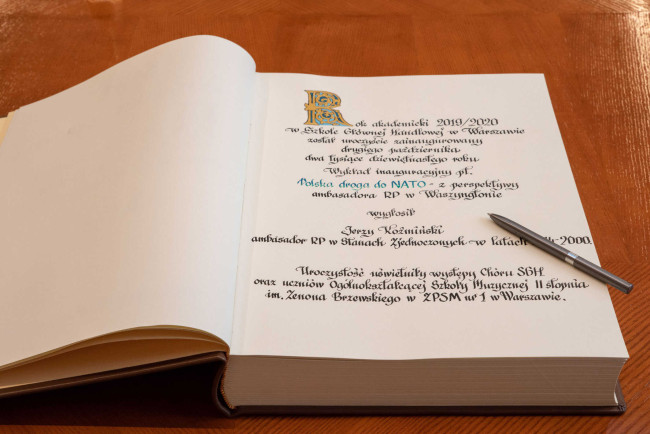 Rok akademicki 2019/2020
w Szkole Głównej Handlowej w Warszawie
został uroczyście zainaugurowany
drugiego października
dwa tysiące dziewiętnastego roku
Wykład inauguracyjny pt.
Polska droga do NATO - z perspektywy
ambasadora RP w Waszyngtonie
wygłosił
Jerzy Koźmiński
ambasador RP w Stanach Zjednoczonych w latach 4-2000.
Uroczystość uświetniły występy Chóru SGH
oraz uczniów Ogólnokształcącej Szkoły Muzycznej II stopnia
im. Zenona Brzewskiego w ZPSM nr 1 w Warszawie.